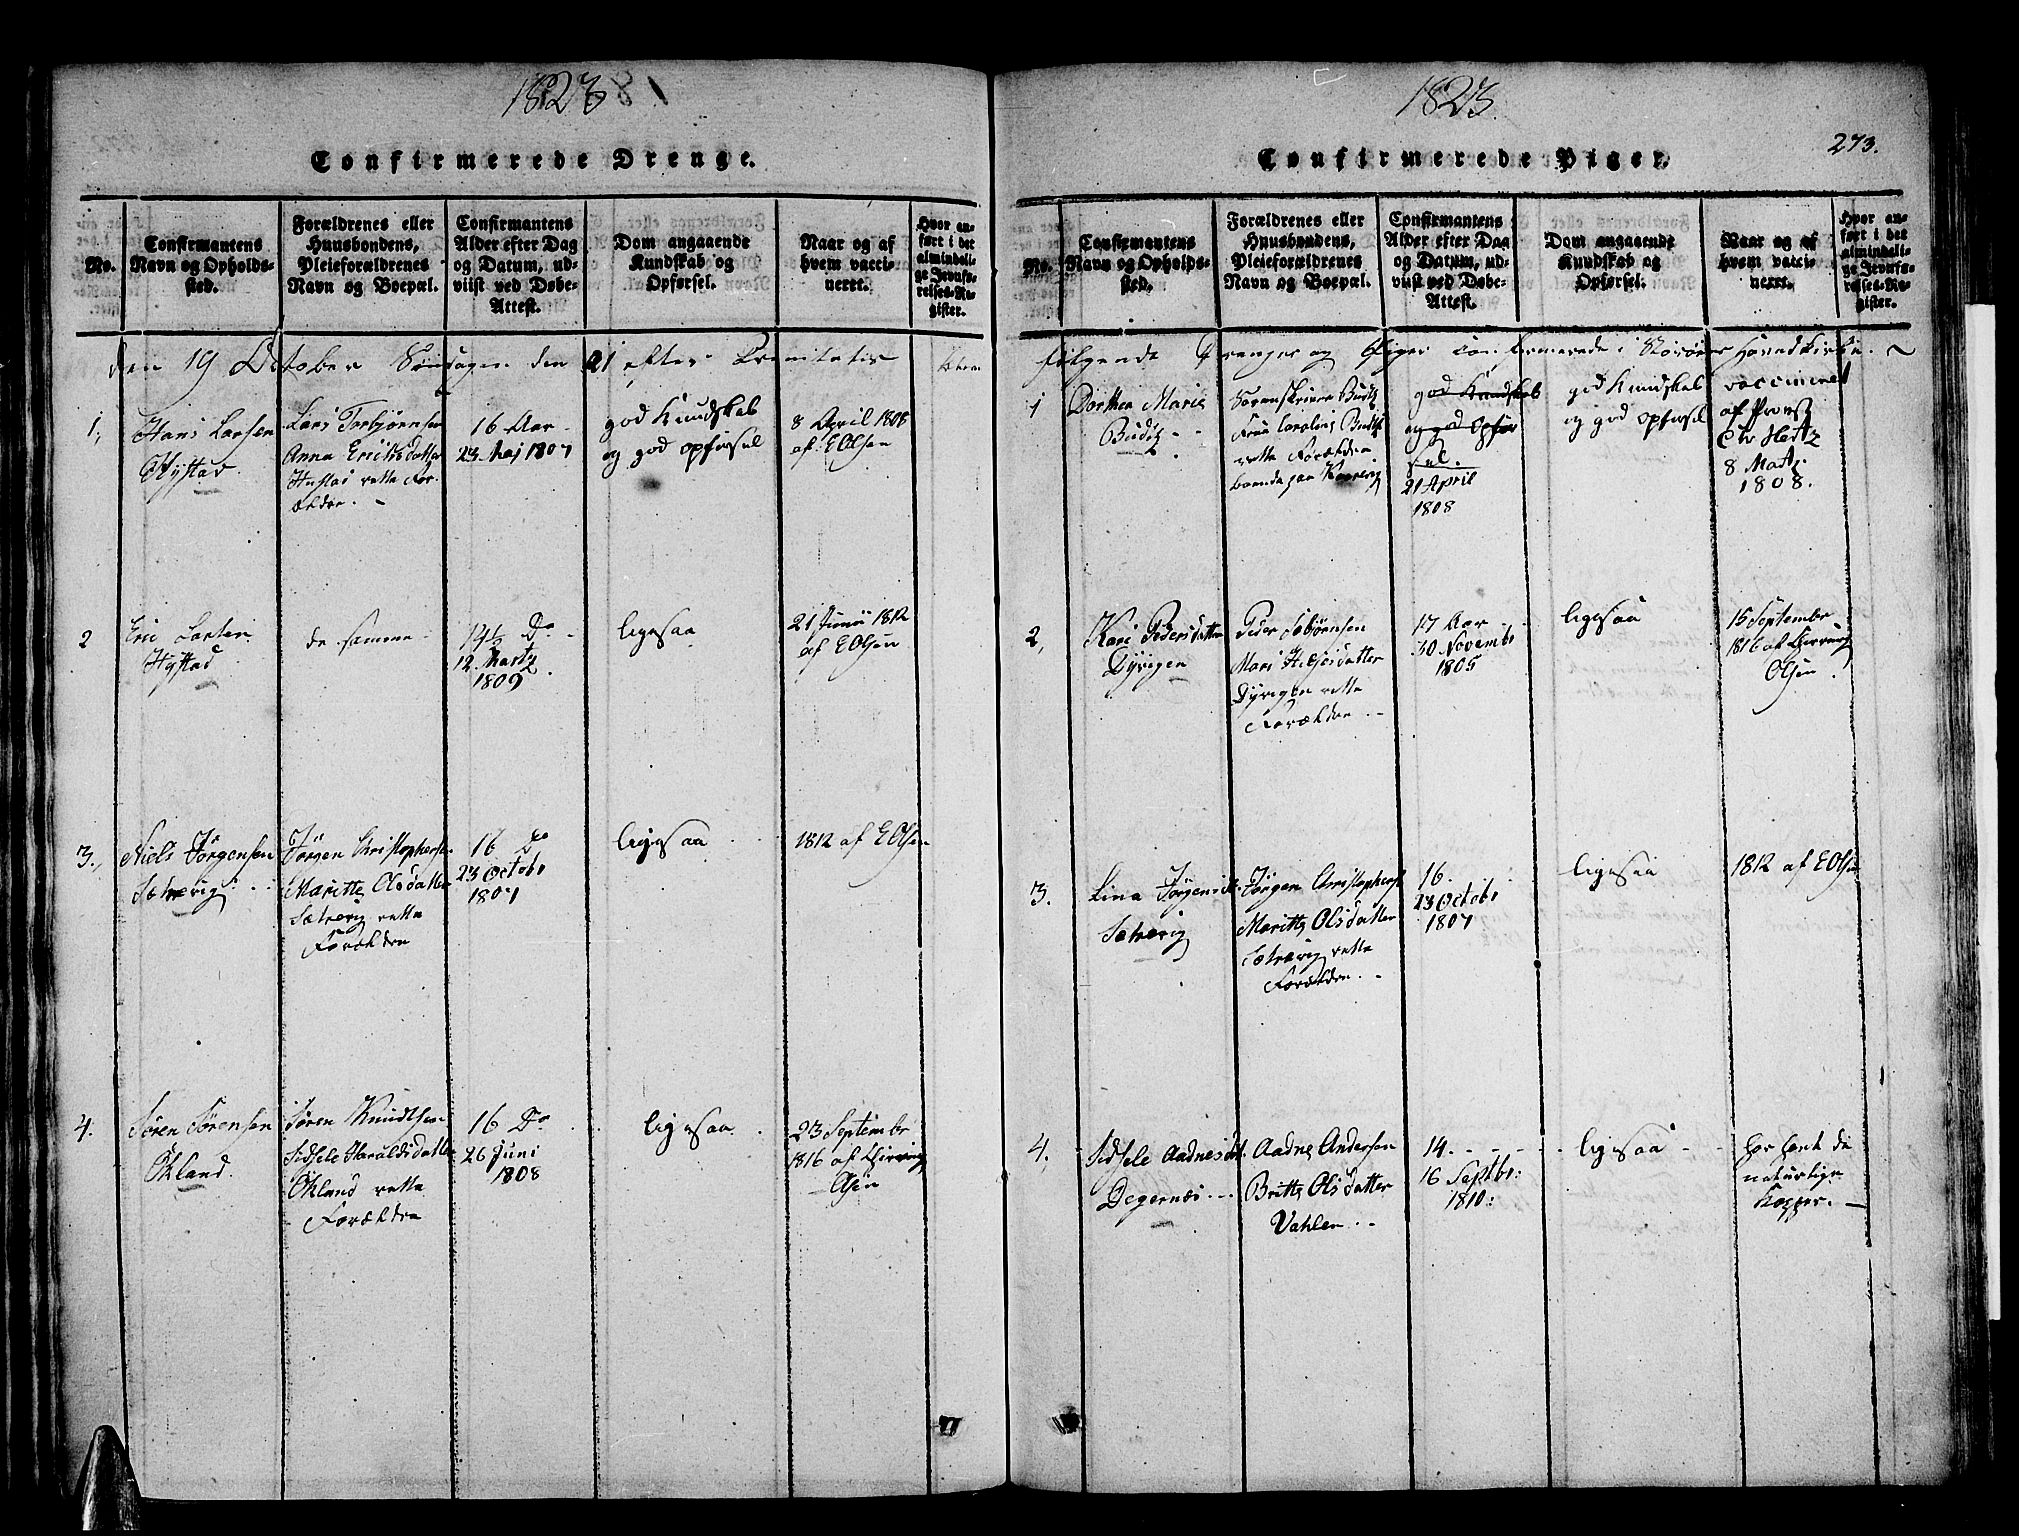 1823
Confirmerede Drenge.
No.
Confirmantens
Navn og Opholds-
sted.
Forældrenes eller
Huusbondens,
Pleieforældrenes
Navn og Boepæl.
Confirmantens
Alder efter Dag
og Datum, ud-
viist ved Døbe-
Attest.
Dom angaaende
Kundskab og
Opførsel.
Naar og af
hvem vacci-
neret.
Hvor an-
ført i det
almindeli-
ge Jevnfø-
relses-Re-
gister.
den 19 October Søndagen den 21 efter Trinitatis
1,
Hans Larsen
Hystad
Lars Torbjørnsen
Anna Erichsdatter
Hystad rette For-
ældre. -
16 Aar
23. Maj 1807
god Kundskab
og god opførsel
8 April 1808
af E Olsen
2
Eric Larsen
Hystad
de samme -
14½ Do
12. Martz
1809
ligesaa
21 Junii 1812
af E Olsen
3.,
Niels Jørgensen
Sætrevig
Jørgen Christophersen
Maritte Olsdatter
Sætrevig rette
Forældre
16 Do
23 Octobr
1807
ligesaa
1812 af E Olsen
4.
Søren Sørensen
Økland
Søren Knudtsen
Sidsele Haraldsdatter
Økland rette
Forældre
16 Do
26 Juni
1808
ligesaa
23 Septembr
1816 af
Olsen
1823.
273.
Confirmerede Piger.
No.
Confirmantens
Navn og Opholds-
sted.
Forældrenes eller
Huusbondens,
Pleieforældrenes
Navn og Boepæl.
Confirmantens
Alder efter Dag
og Datum, ud-
viist ved Døbe-
Attest.
Dom angaaende
Kundskab og
Opførsel.
Naar og af
hvem vacci-
neret.
Hvor an-
ført i det
almindeli-
ge Jevnfø-
relses-Re-
gister.
følgende Drenger og Piger Confirmerede i Storøens Hovedkirke.
1
Dorthea Marie
Budtz
Sorenskriver Budtz
Frue Caroline Budtz
rette Forældre
boende paa
god Kundskab
og god Opfør
sel.
21 April
1808
god Kundskab
og god opførsel
vaccineret
af Provst
Chr Hertz
8 Martz
1808.
2,
Kari Pedersdatter
Dyvigen
Peder Sebørnsen
Mari
Dyvigen rette
Forældre -
17 Aar
30 Novembr
1805
ligesaa
15 Septembr
1816 af
Olsen
3.
Lina Jørgensd.
Sætrevig
Jørgen Christophers.
Maritte Olsdatter
Sætrevig rette
Forældre. -
16.
23 Octobr
1807
ligesaa
1812 af E Olsen
4.
Sidsele Aadnesdt.
Degernæs - -
Aadne Andersen
Britte Olsdatter
Vahlen. -
14. - - -
16 Septbr:
1810:
ligesaa - -
har havt de
naturlige
Kopper. -